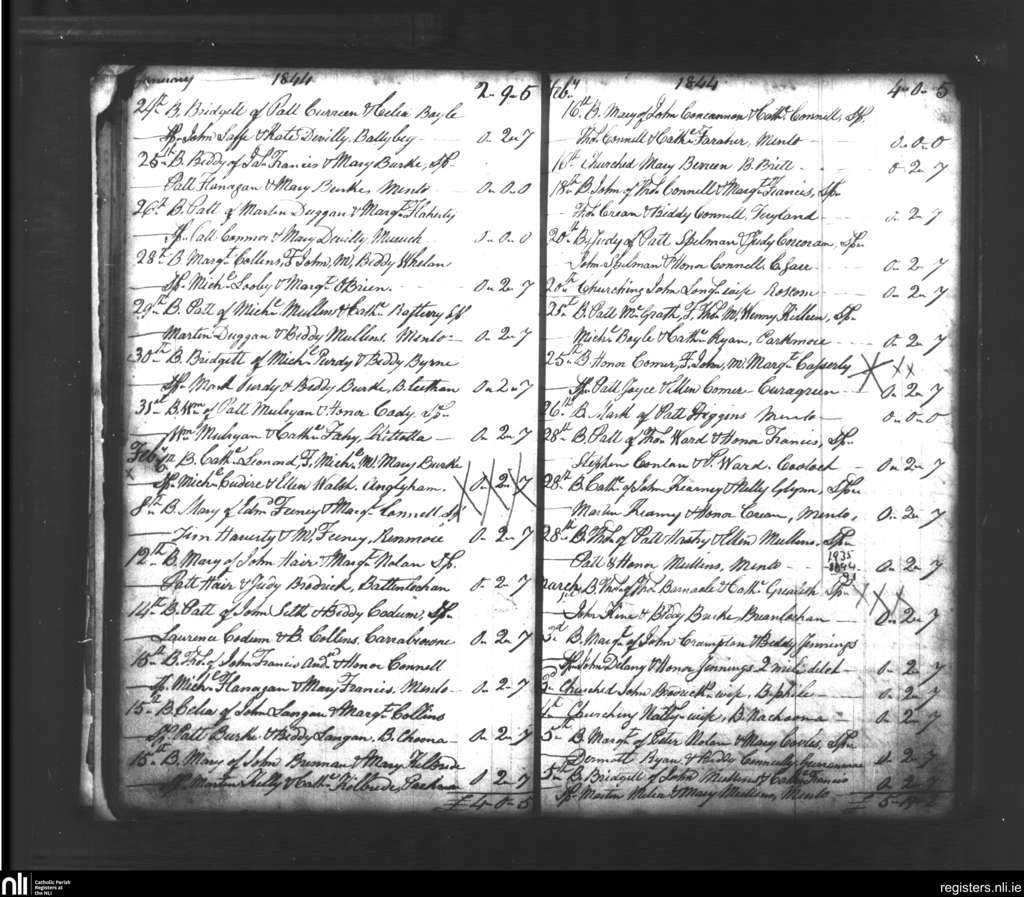 January 1844 2-9-5
24th B. Bridgett of Patt Curreen & Celia Boyle
Sp. John Jaff & Kate Devilly, Ballybey 0-2-7
25th B. Biddy of Jas. Francis & Mary Burke, Sp.
Patt Flanagan & Mary Burke, Menlo 0-0-0
26th B. Patt of Martin Duggan & Margt. Flaherty
Sp. Patt Connor & Mary Devilly, 1-0-0
28th B. Margt. Collins, F. John, M. Biddy Whelan
Sp. Michl. Looby & Margt. OBrien. 0-2-7
29th B. Patt of Michl. Mullen & Cath. Raftery Sp
Martin Duggan & Biddy Mullins, Menlo 0-2-7
30th B. Bridgett of Michl. Purdy & Biddy Byrne
Sp. Mark Purdy & Biddy Burke, 0-2-7
31st B. Wm. of Patt Mulryan & Honor Cady, Sp.
Wm. Mulryan & Cath. Fahy, Kiltolla 0-2-7
Feby. B. Cath. Leonard, F. Michl. M. Mary Burke
Sp. Michl. Cudire & Ellen Walsh. Anglyham. 0-2-7
8th B. Mary of Edmd. Feeney & Margt. Connell, Sp.
Tim Haverty & W. Feeney, Renmore 0-2-7
12th B. Mary of John Hair & Margt. Nolan Sp.
Patt Hair & Judy Brodrick, Battenlochan 0-2-7
14th B. Patt of John Silk & Biddy Codum, Sp.
Laurence Codum & B. Collins, Carrabrowne 0-2-7
15th B. Thos. of John Francis and & Honor Connell
Sp. Michl. Flanagan & Mary Francis, Menlo 0-2-7
15th B. Celia of John Langan & Margt. Collins
Sp. Patt Burke & Biddy Langan. B. Choona 0-2-7
15th B. Mary of John Brennan & Mary Kilbride
Sp. Martin Kelly & Cath. Kilbride, 0-2-7
£ 4-0-5
Feby. 1844 4-0-5
16th B. Mary of John Concannon & Cath. Connell, Sp.
Thos. Connell & Cath. Faraher, Menlo 0-0-0
16th Churched Mary Berreen B. Britt 0-2-7
18th B. John of Thos. Connell & Margt. Francis, Sp.
Thos. Crean & Biddy Connell, 0-2-7
20th B. Judy of Patt Spelman & Judy Corcoran, Sp.
John Spelman & Honor Connell. 0-2-7
20th Churching John Long's wife Roscom 0-2-7
25th B. Patt McGrath, F. Thos. M. Henny Killeen, Sp.
Michl. Boyle & Cath. Ryan, Parkmore 0-2-7
25th B. Honor Comer, F. John, M. Margt. Casserly
Sp. Patt Joyce & Ellen Comer Curagreen 0-2-7
26th B. Mark of Patt Higgins Menlo 0-0-0
28th B. Patt of Thos. Ward & Honor Francis, Sp.
Stephen Conlan & S. Ward. Cooloch 0-2-7
28th B. Cath. of John Kearney & Nelly Glynn, Spr.
Martin Kearny & Honor Crean, Menlo, 0-2-7
28th B. Thos. of Patt & Ellen Mullens, Sp.
Patt & Honor Mullins, Menlo 0-2-7
1935
1844
91
March 1st B. Thos. of Thos. Barnacle & Cath. Grealish Sp.
John Kine & Biddy Burke, Breanlochan 0-2-7
3d B. Margt. of John Crampton & Biddy Jennings
Sp. John Delany & Honor Jennings 2 mile ditch 0-2-7
3d Churched John Brodrick's wife, B. phile 0-2-7
4th Churching wife, B. Nachoona 0-2-7
5th B. Margt. of Peter Nolan & Mary Cooles, Spr.
Dermott Ryan & Biddy Connelly 0-2-7
5th B. Bridgett of John Mullins & Cath. Francis
Sp. Martin Melia & Mary Mullins, Menlo 0-2-7
nli
Catholic Parish
Registers at
the NLI
registers.nli.ie